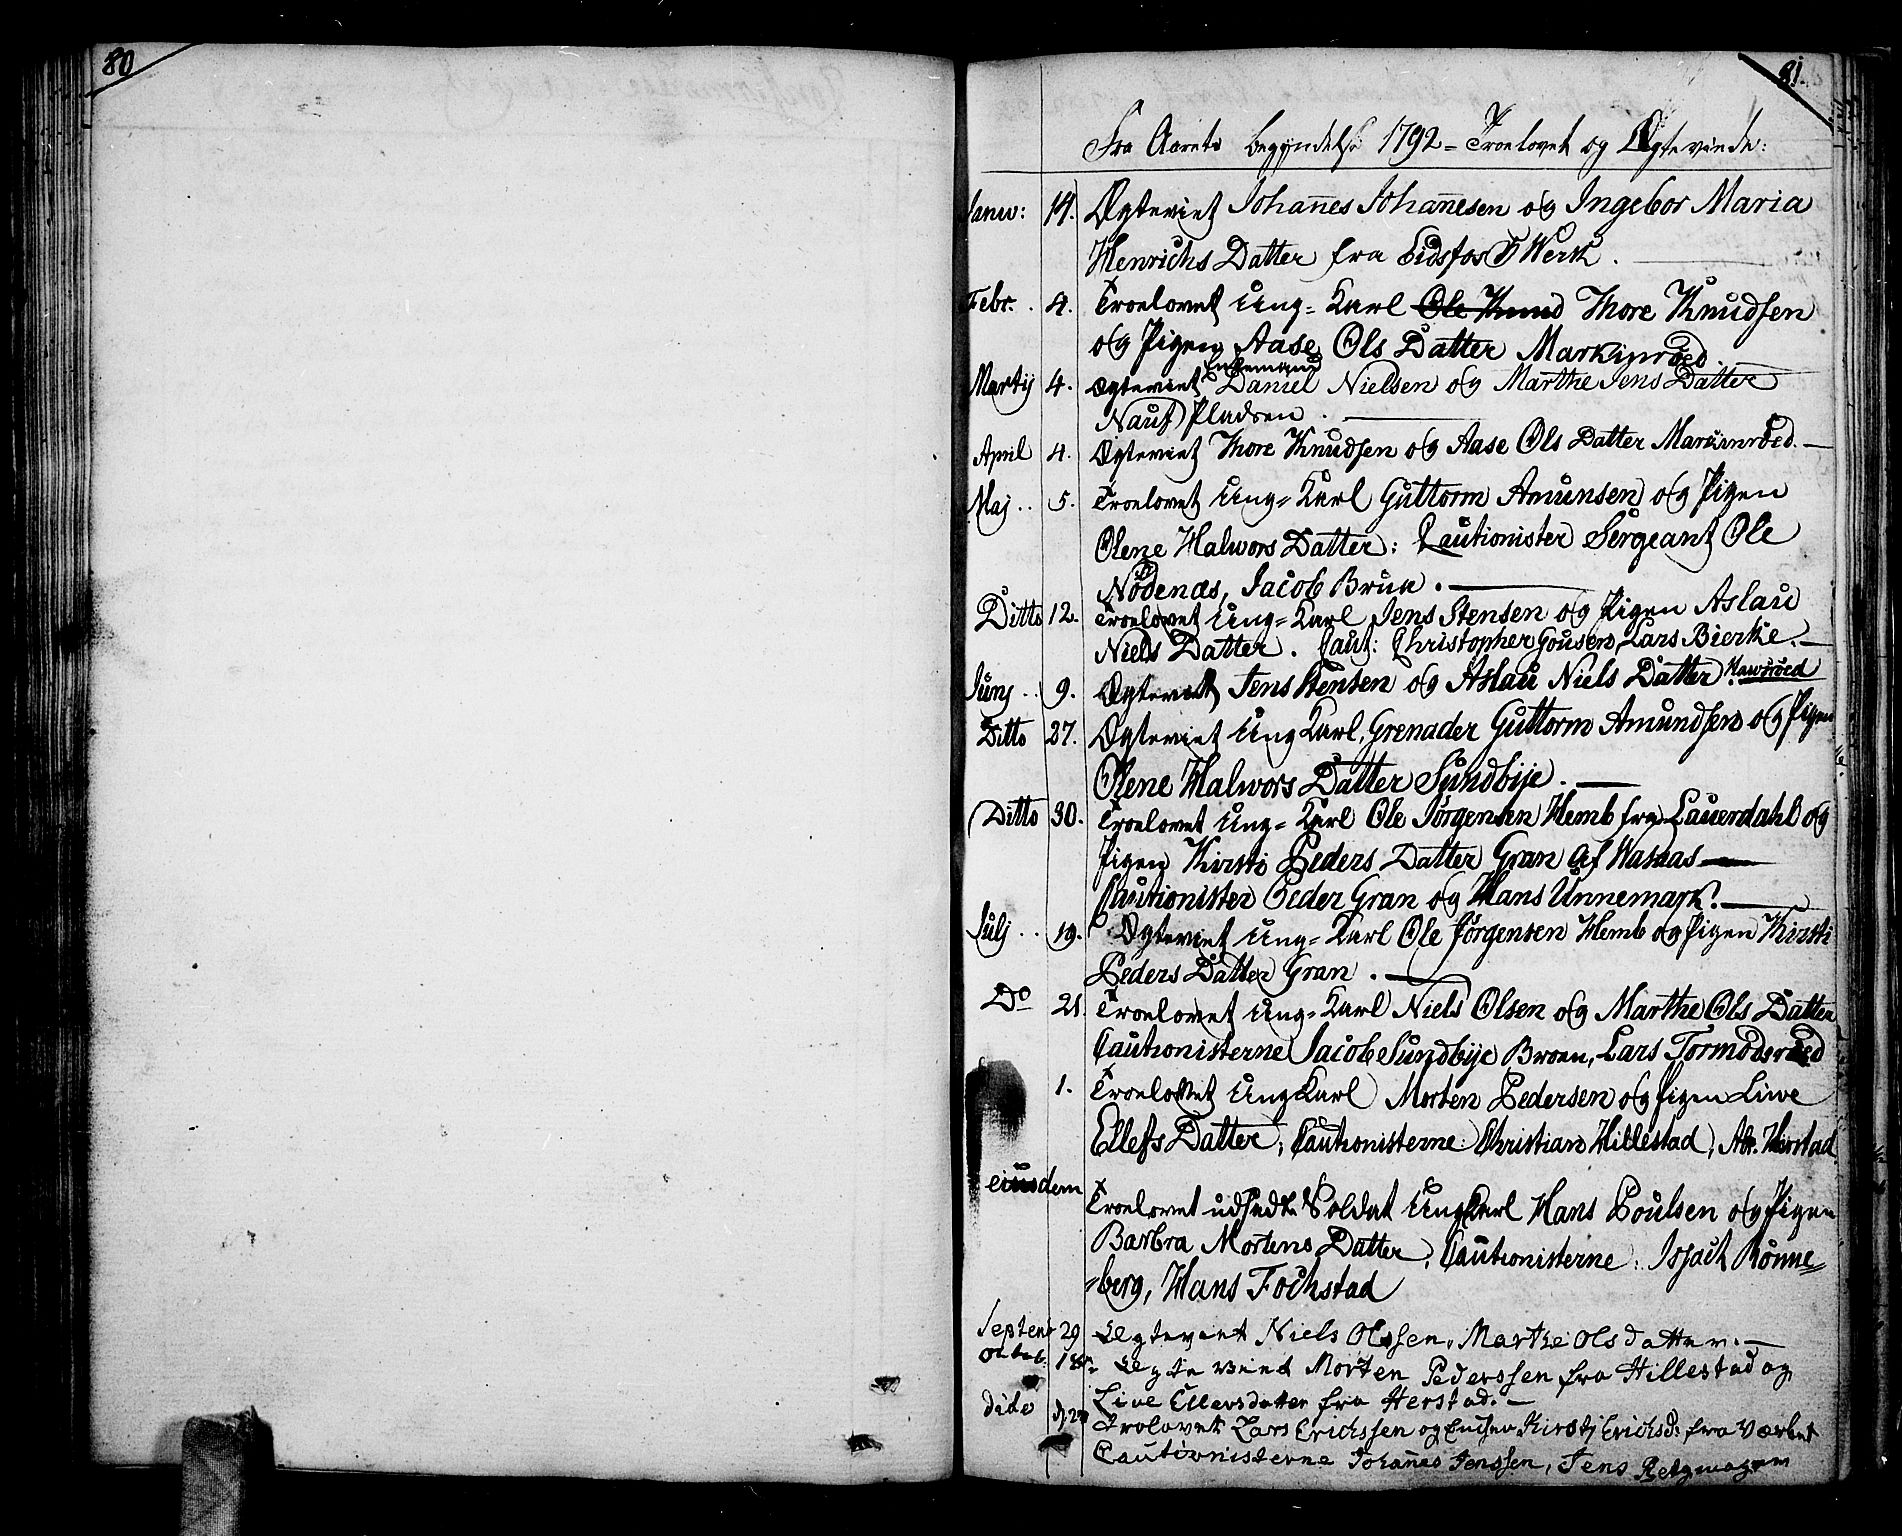 80
81.
Fra Aarets begÿndelse 1792 = Troelovet og Ægteviede:
Janu: 14. Ægteviet Johan̄es Johan̄esen og Ingebor Maria
Henrichs Datter fra Eidsfos Werk.
Febr. . 4. Troelovet Ung = Karl Ole Knud Thore Knudsen
og Pigen Aase Ols Datter Markimröed.
Martij 4. Ægteviet Enkemand Daniel Nielsen og Marthe Jens Datter
Nauf Pladsen.
April 4. Ægteviet Thore Knudsen og Aase Ols Datter Markimröed.
Maj . . 5. Troelovet Ung = Karl Guttorm Amunsen og Pigen
Olene Halwors Datter: Cautionister Sergeant Ole
Nödenæs, Jacob Brun.
Ditto 12. Troelovet Ung = Karl Jens Stensen og Pigen Aslau
Niels Datter. Caut: Christopher Gousen, Lars Bierke.
Junj . . 9. Ægteviet Jens Stensen og Aslau Niels Datter Hawsröed
Ditto 27. Ægteviet Ung Karl, Grenader Guttorm Amundsen og Pigen
Olene Halwors Datter Sundbÿe.
Ditto 30. Troelovet Ung = Karl Ole Jörgensen Hemb fra Lauerdahl og
Pigen Kirsti Peders Datter Gran af Wasaas
Cautionister Peder Gran og Hans Unnemark.
Julj . . 19. Ægteviet Ung = Karl Ole Jörgensen Hemb og Pigen Kirsti
Peders Datter Gran.
Do 21. Troelovet Ung = Karl Niels Olsen og Marthe Ols Datter
Cautionisterne Jacob Sundbÿe Broen, Lars Tormodsröed
1. Troelovet Ung Karl Morten Pedersen og Pigen Liwe
Ellefs Datter; Cautionisterne: Christian Hillestad, Abr. Herstad
eiusdem Troelovet udsadte Soldat Ung Karl Hans Poulsen og Pigen
Barbra Mortens Datter, Cautionisterne: Issach Rönne=
=berg, Hans Fochstad
Septem 29 Ægteviet Niels Olssen, Marthe Olsdatter.
Octob. 18 Ægteviet Morten Pederssen fra Hillestad og
Live Ellevsdatter fra Herstad.
dide d 20 Trolovet Lars Erichssen og Enchen Kirstj Erichsd: fra Værket
Cautionisterne Johan̄es Jenssen, Jens